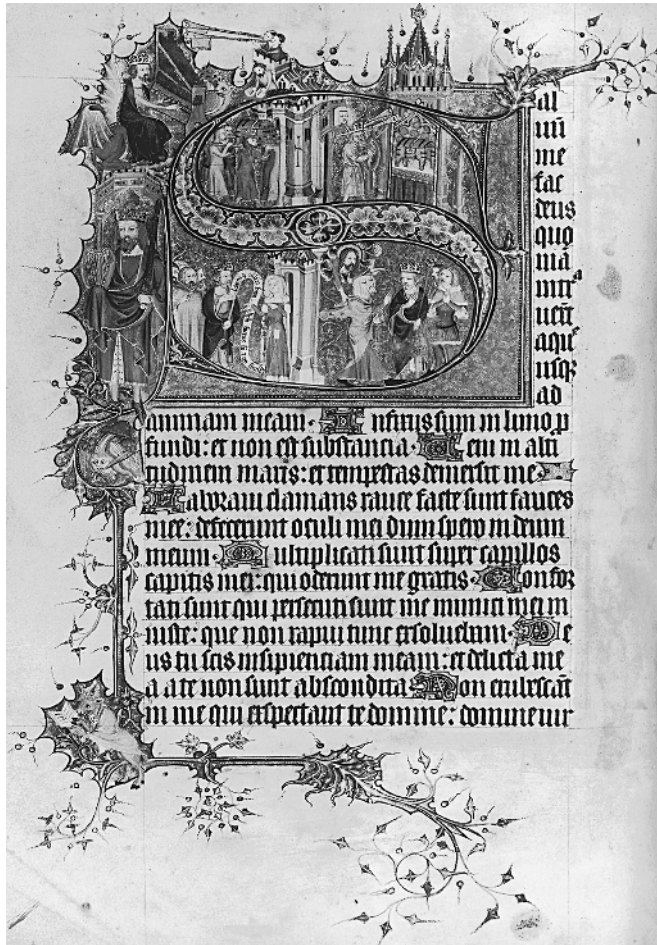 Sal
uū
me
fac
deus
quo
niā
intᵃ
uerūt
aque
usqꝫ
ad
animam meam · Infixus sum in limo p
fundi : et non est substancia · Ueni in alti
tudinem maris : et tempestas demersit me
Laboraui clamans rauce facte sunt fauces
mee : defecerunt oculi mei dum spero in deum
meum · Multiplicati sunt super capillos
capitis mei : qui oderunt me gratis · Confor
tati sunt qui persecuti sunt me inimici mei in
iuste : que non rapui tunc exsoluebam · De
us tu scis insipienciam meam : et delicta me
a a te non sunt abscondita · Non erubescāt
in me qui exspectant te domine : domine uir